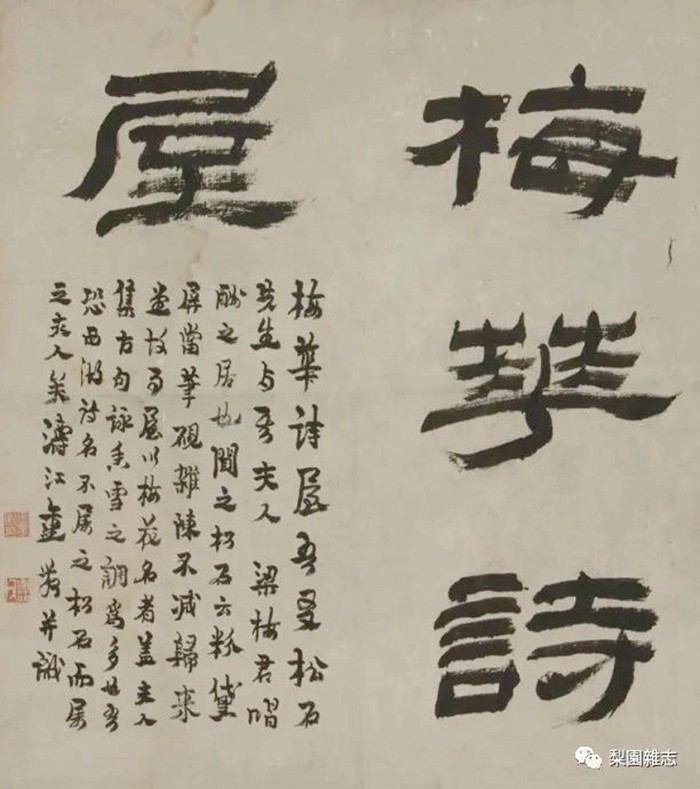 梅華詩
屋
梅華詩屋吾友松石
先生与夫人梁梅君唱
酬之居也聞之松石云粉黛
屏當筆硯雜陳不減歸來
堂故事屋以梅花名者盖夫人
集古句詠香雪之詞爲多也吾
恐西湖詩名不屬之松石而屬
之夫人矣濤江童并識
梨園雜志